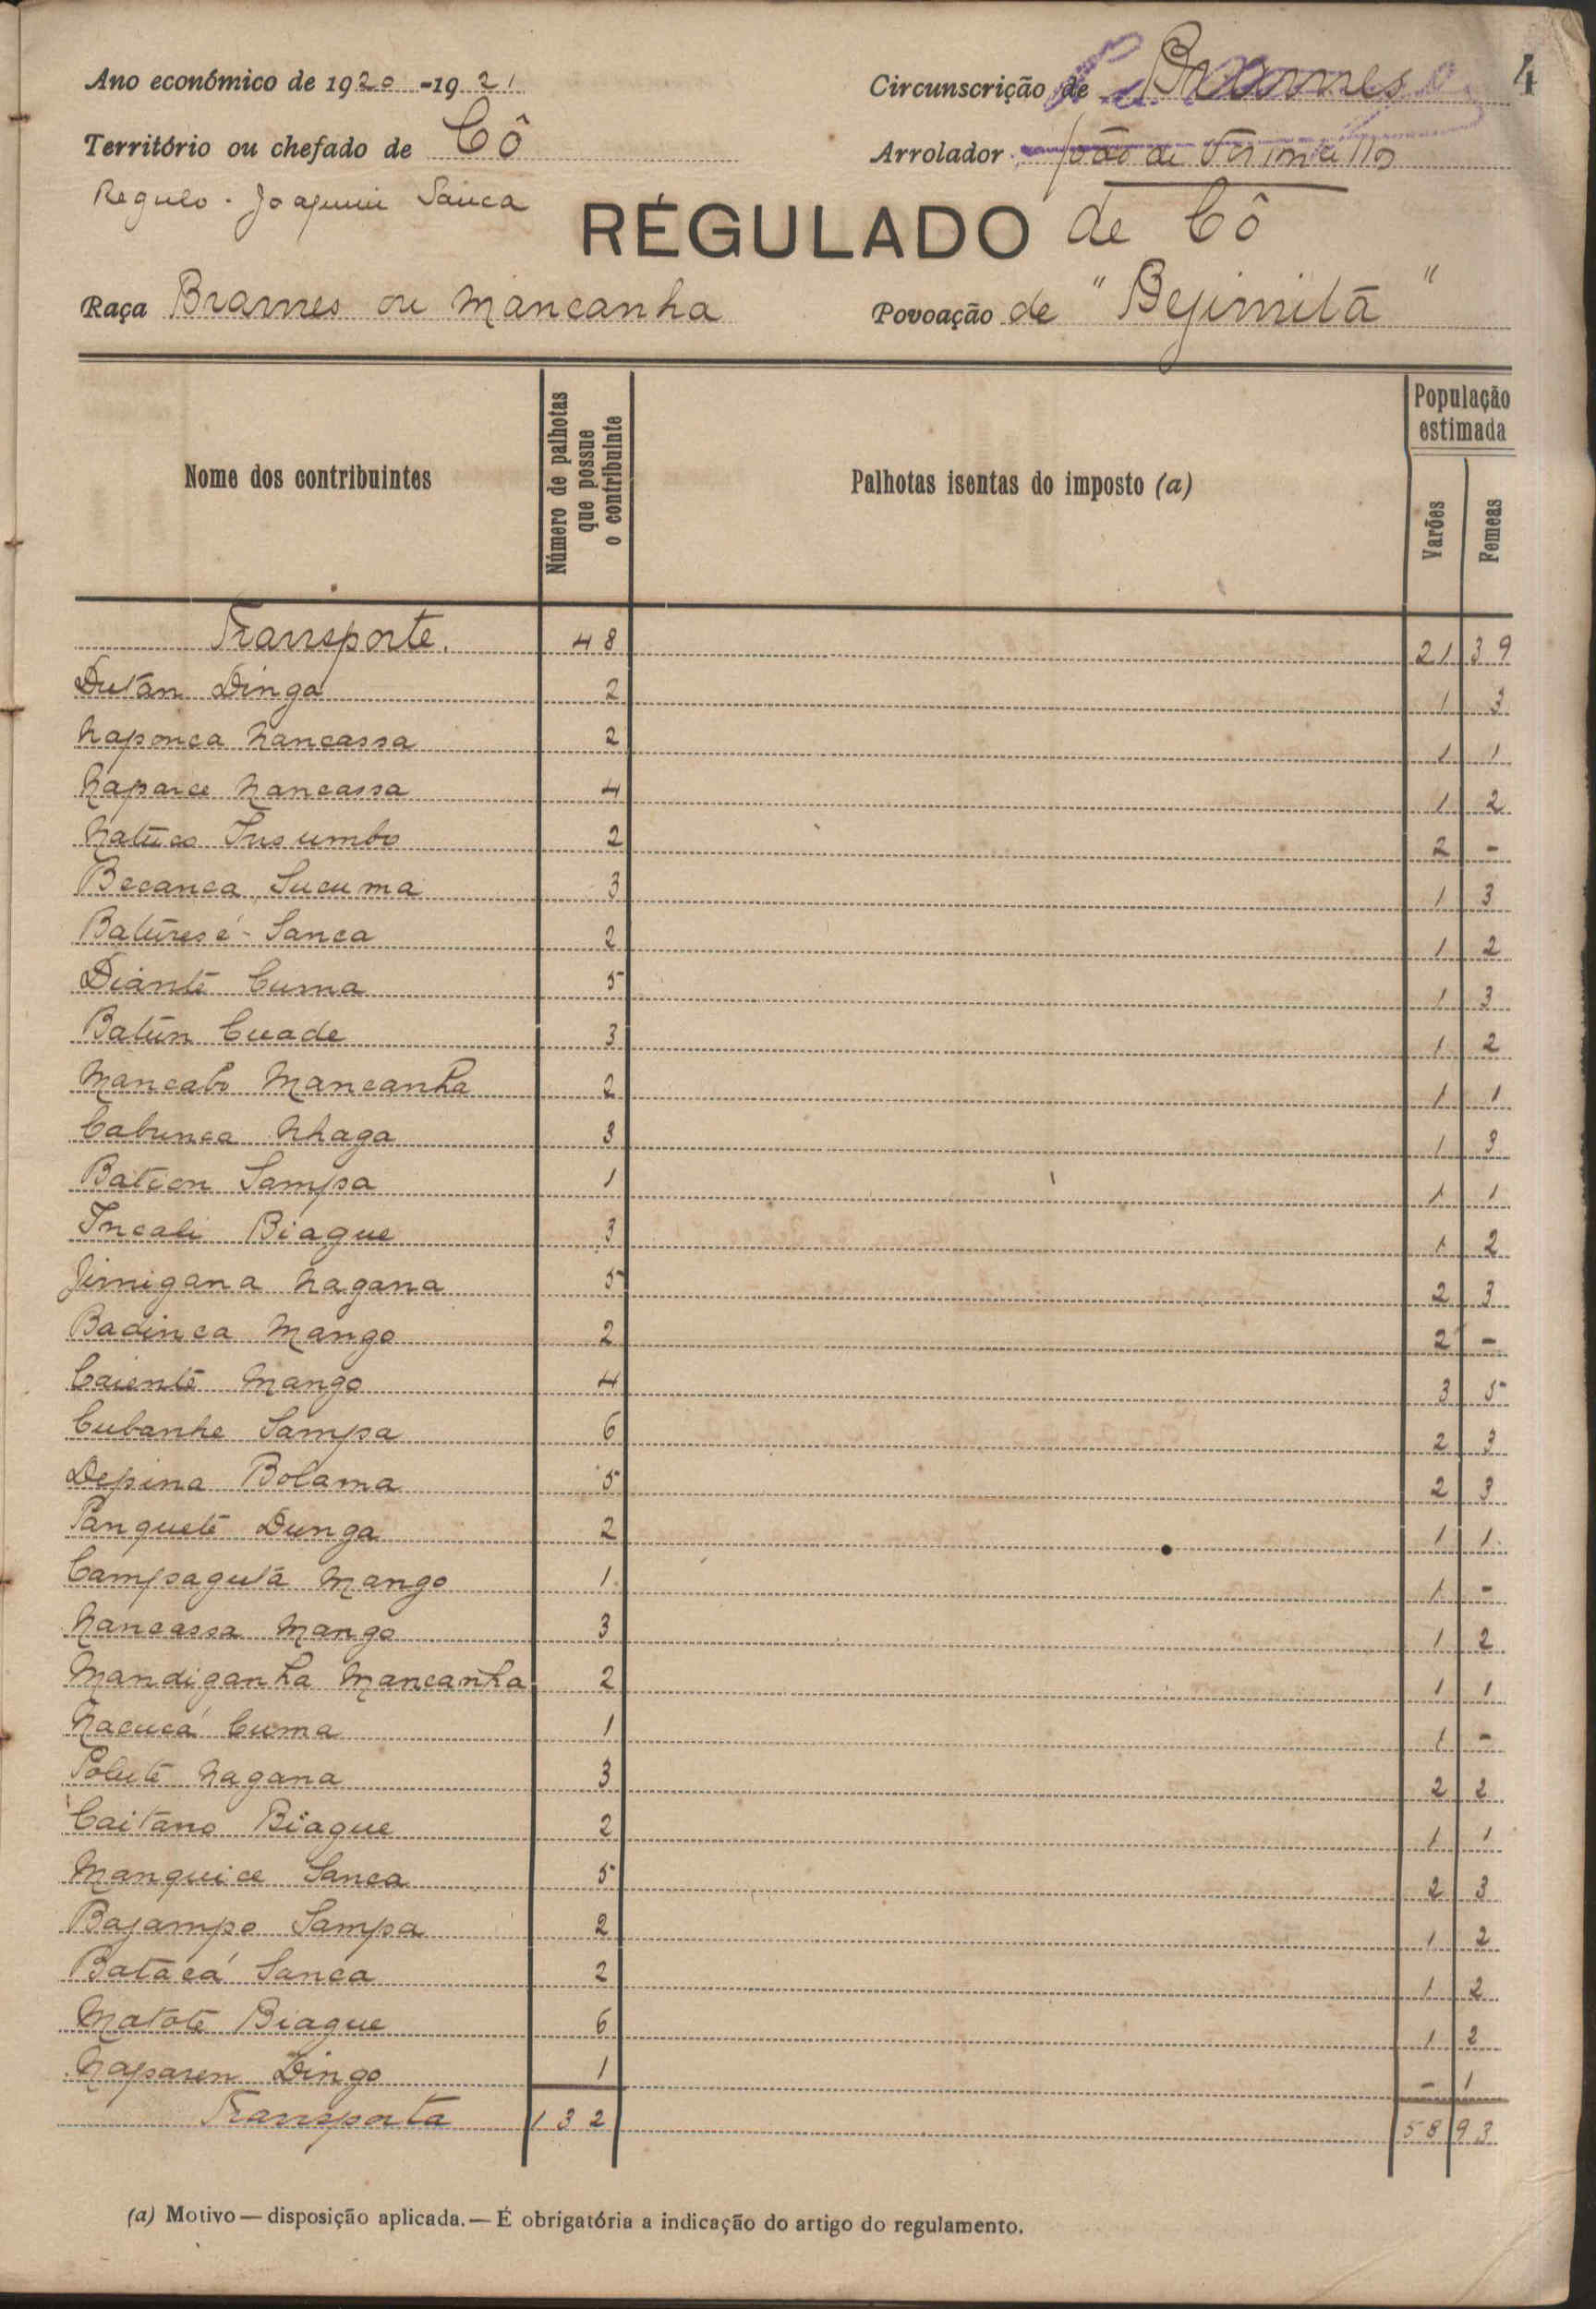 4
Ano económico de 1920-1921
Circunscrição de Brames
Território ou chefado de Cô
Arrolador João de
Regulo - Joaquim Sanca
RÉGULADO de Cô
Raça Brames ou Mancanha
Povoação de "Bejimitā"
Nome dos contribuintes
Número de palhotas que possue o contribuinte
Palhotas isentas do imposto (a)
População estimada
Varões
Femeas
Transporte. 48 21 39
Dután Dinga 2 1 3
Naponca Nancassa 2 1 1
Naparce Nancassa 4 1 2
Natūco Insumbo 2 2 -
Becanca Sucuma 3 1 3
Batūresé - Sanca 2 1 2
Diantē Cuma 5 1 3
Batūn Cuade 3 1 2
Mancabo Mancanha 2 1 1
Cabunca Nhaga 3 1 3
Baticon Sampa 1 1 1
Incali Biague 3 1 2
Jimigana Nagana 5 2 3
Badinca Mango 2 2 -
Caientē Mango 4 3 5
Cubanhe Sampa 6 2 3
Depina Bolama 5 2 3
Panquetē Dunga 2 1 1
Campagutā Mango 1 1 -
Nancassa Mango 3 1 2
Mandiganha Mancanha 2 1 1
Nacucá Cuma 1 1 -
Polutē Nagana 3 2 2
Caitano Biague 2 1 1
Manquice Sanca 5 2 3
Bajampo Sampa 2 1 2
Batacá Sanca 2 1 2
Matotē Biague 6 1 2
Naparen Dingo 1 - 1
Transporta 132 58 93
(a) Motivo — disposição aplicada. — É obrigatória a indicação do artigo do regulamento.